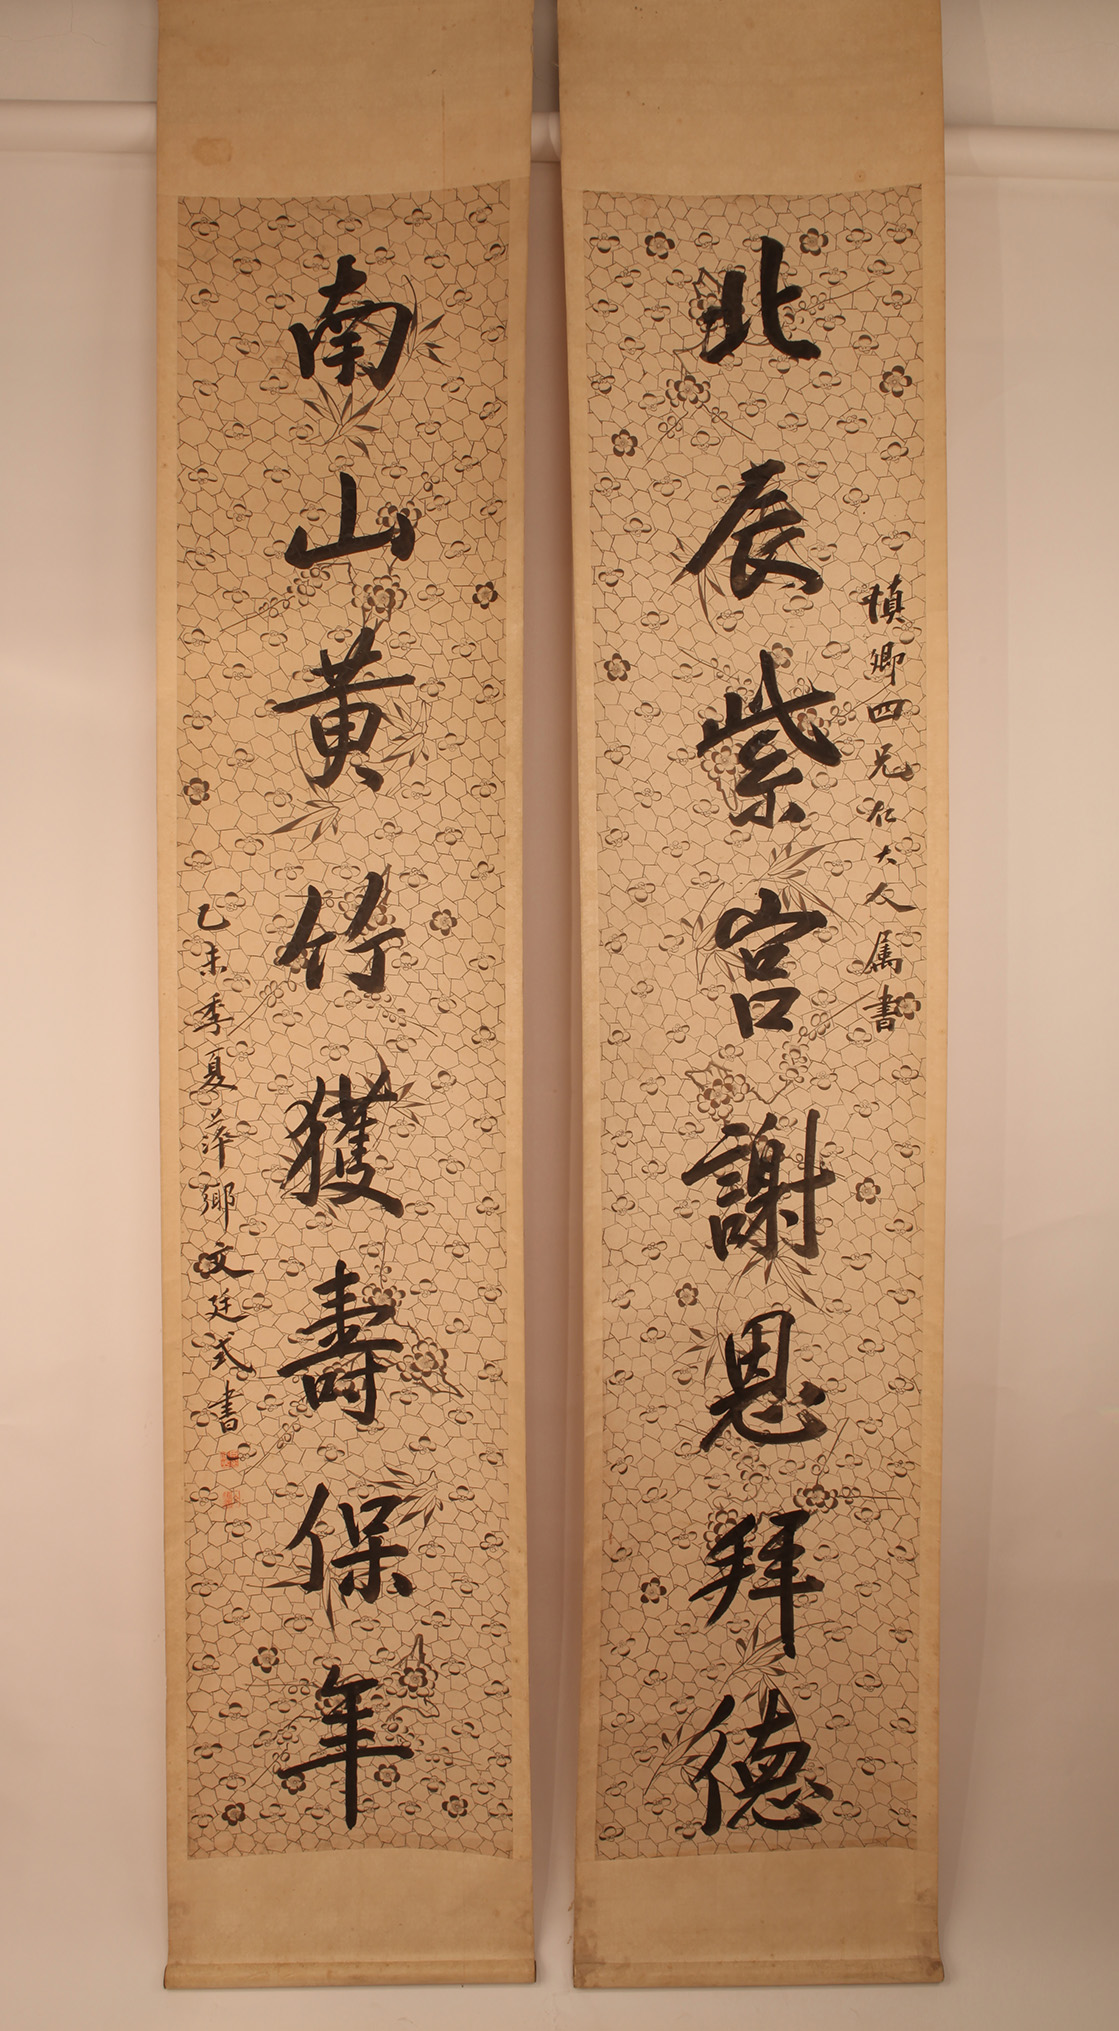 慎卿四兄仁大人属書
北辰紫宫謝恩拜德
南山黄竹獲壽保年
乙未季夏萍鄉文廷式書